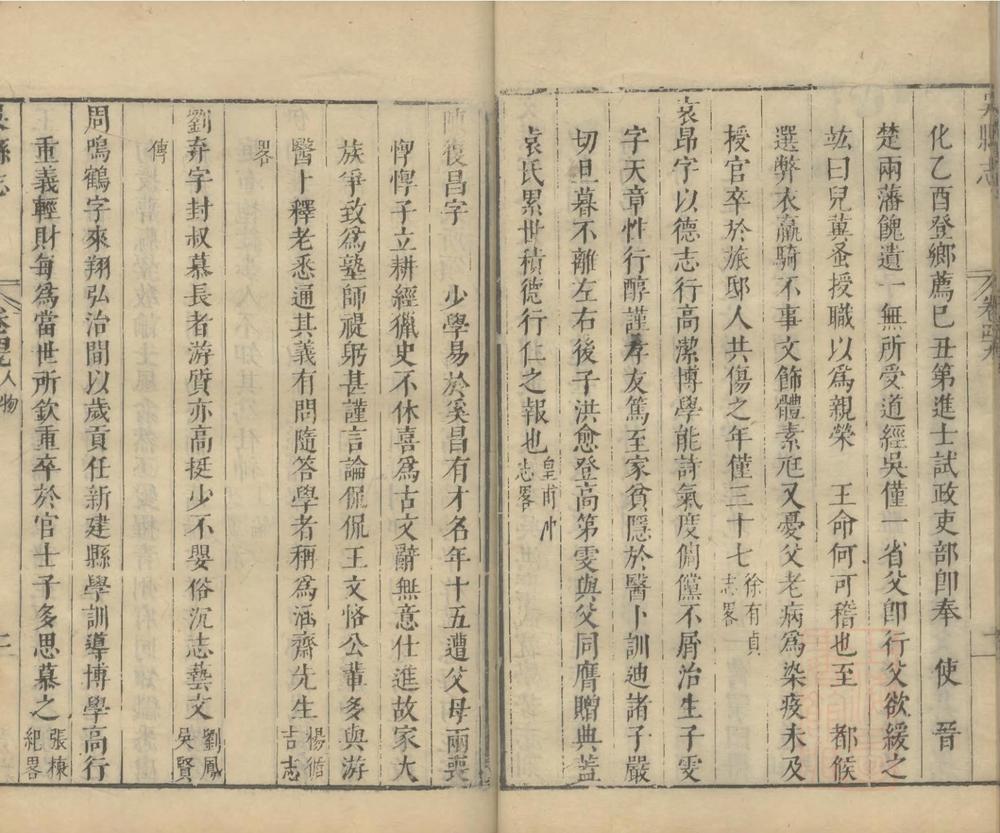 吳縣志
卷四九
化乙酉登鄉薦巳丑第進士試政吏部卽奉 使 晉
楚兩藩餽遺一無所受道經吳僅一省父卽行父欲緩之
竑曰兒蒕蚤授職以爲親榮 王命何可稽也至 都候
選弊衣羸騎不事文飾體素尫又憂父老病爲染疫未及
授官卒於旅邸人共傷之年僅三十七徐有貞志畧
袁昂字以德志行高潔博學能詩氣度倜儻不屑治生子雯
字天章性行醇謹孝友篤至家貧隱於醫卜訓迪諸子嚴
切旦暮不離左右後子洪愈登高第雯與父同膺贈典蓋
袁氏累世積德行仁之報也皇甫冲志畧
陳復昌字 少學易於奚昌有才名年十五遭父母兩喪
惸惸孑立耕經獵史不休喜爲古文辭無意仕進故家大
族爭致爲塾師禔躬甚謹言論侃侃王文恪公輩多與游
醫卜釋老悉通其義有問隨答學者稱爲涵齋先生楊循吉志
畧
劉弃字封叔慕長者游質亦高挺少不嬰俗沉志藝文劉鳳吳賢
傳
周鳴鶴字來翔弘治間以歲貢任新建縣學訓導博學高行
重義輕財每爲當世所欽重卒於官士子多思慕之張棟紀畧
吳縣志
人物